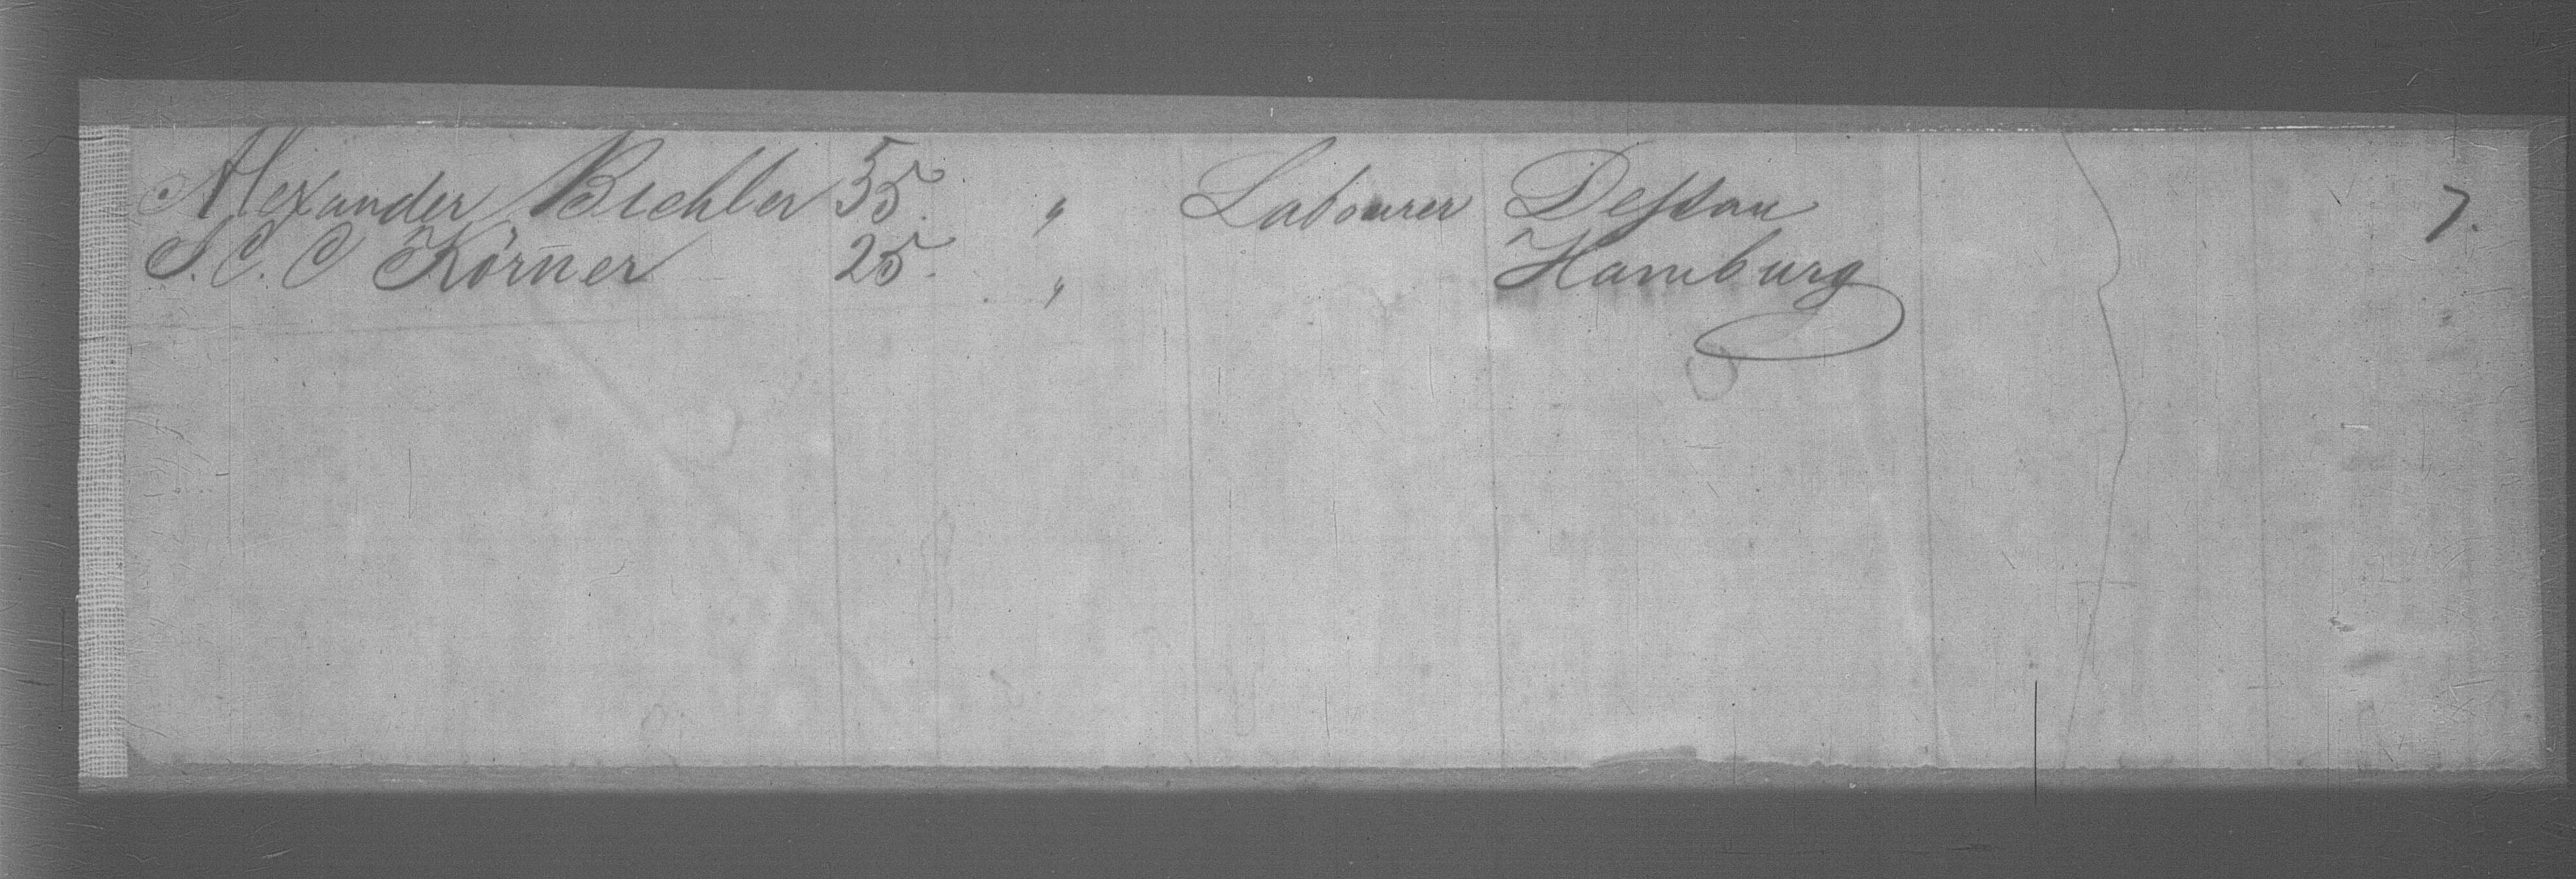 Alexander Bichler 55. " Labourer Dessau 7.
J. C. C Körner 25. " Hamburg